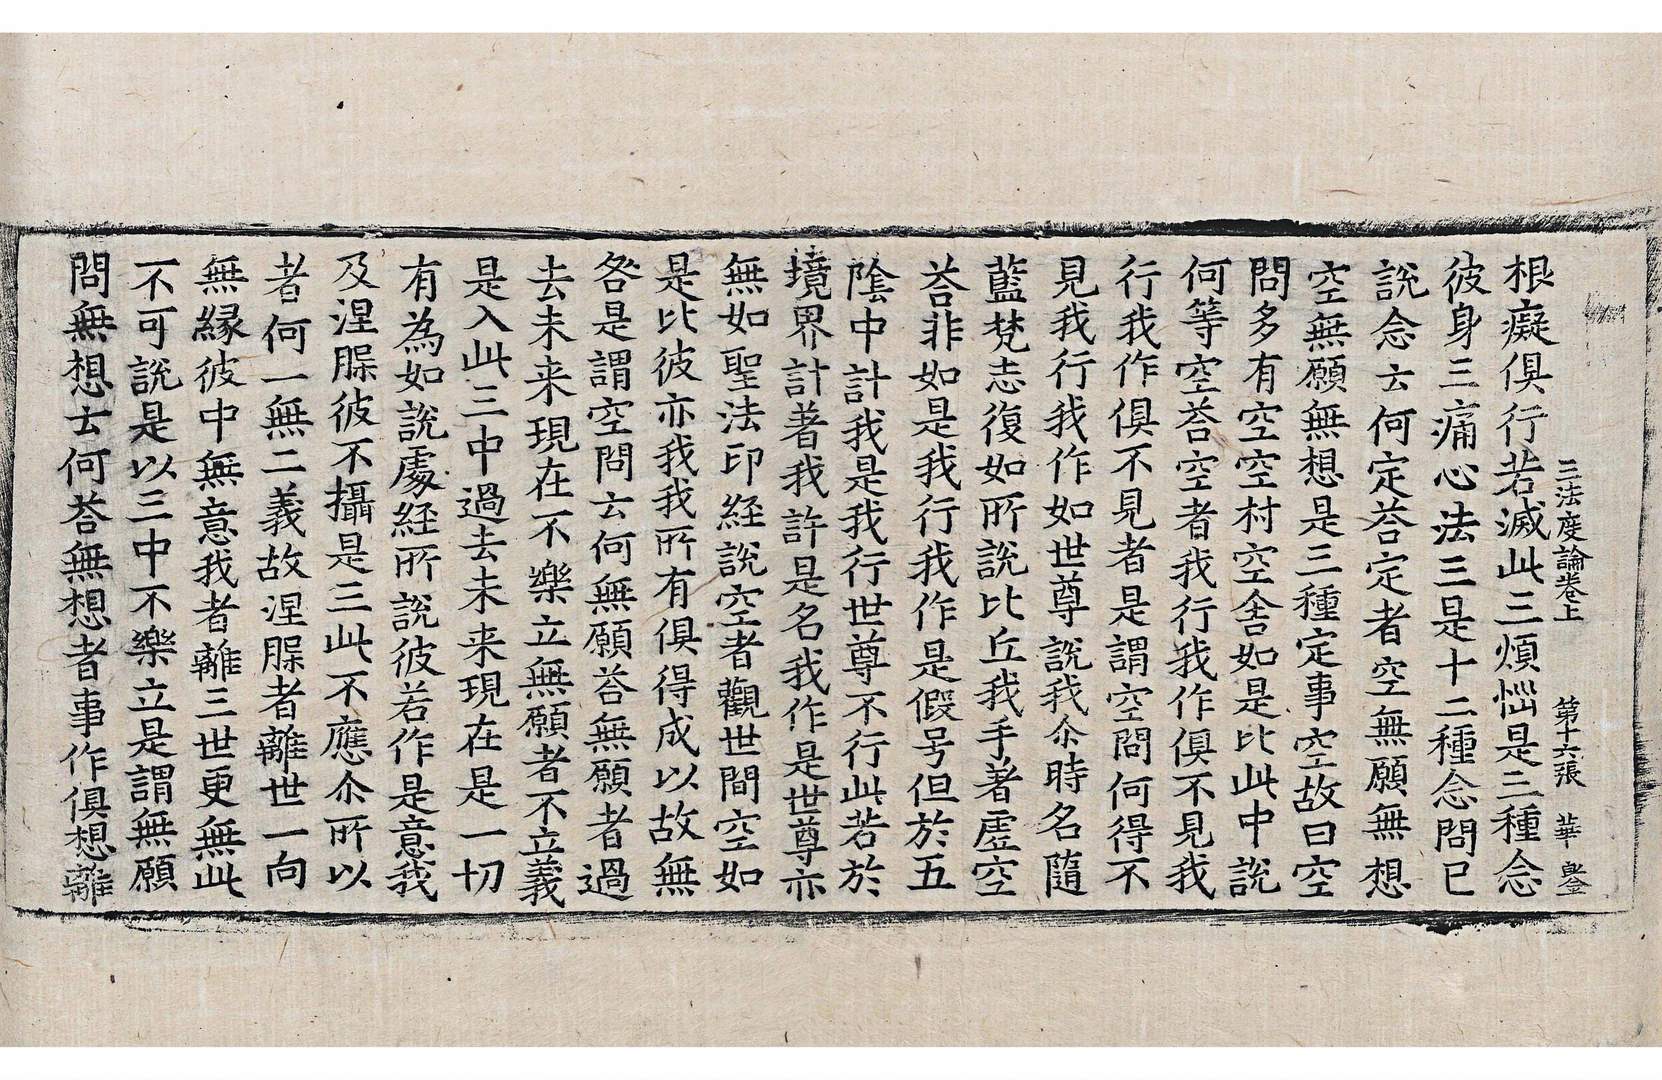 三法度論卷上 第十六張 華
根癡俱行若滅此三煩惱是三種念
彼身三痛心法三是十二種念問已
說念云何定荅定者空無願無想
空無願無想是三種定事空故曰空
問多有空空村空舍如是比此中說
何等空荅空者我行我作俱不見我
行我作俱不見者是謂空問何得不
見我行我作如世尊說我尒時名隨
藍梵志復如所說比丘我手著虛空
荅非如是我行我作是假号但於五
陰中計我是我行世尊不行此若於
境界計著我許是名我作是世尊亦
無如聖法印經說空者觀世間空如
是比彼亦我我所有俱得成以故無
咎是謂空問云何無願荅無願者過
去未来現在不樂立無願者不立義
是入此三中過去未来現在是一切
有為如說處経所說彼若作是意我
及涅脲彼不攝是三此不應尒所以
者何一無二義故涅脲者離世一向
無緣彼中無意我者離三世更無此
不可說是以三中不樂立是謂無願
問無想云何荅無想者事作俱想離